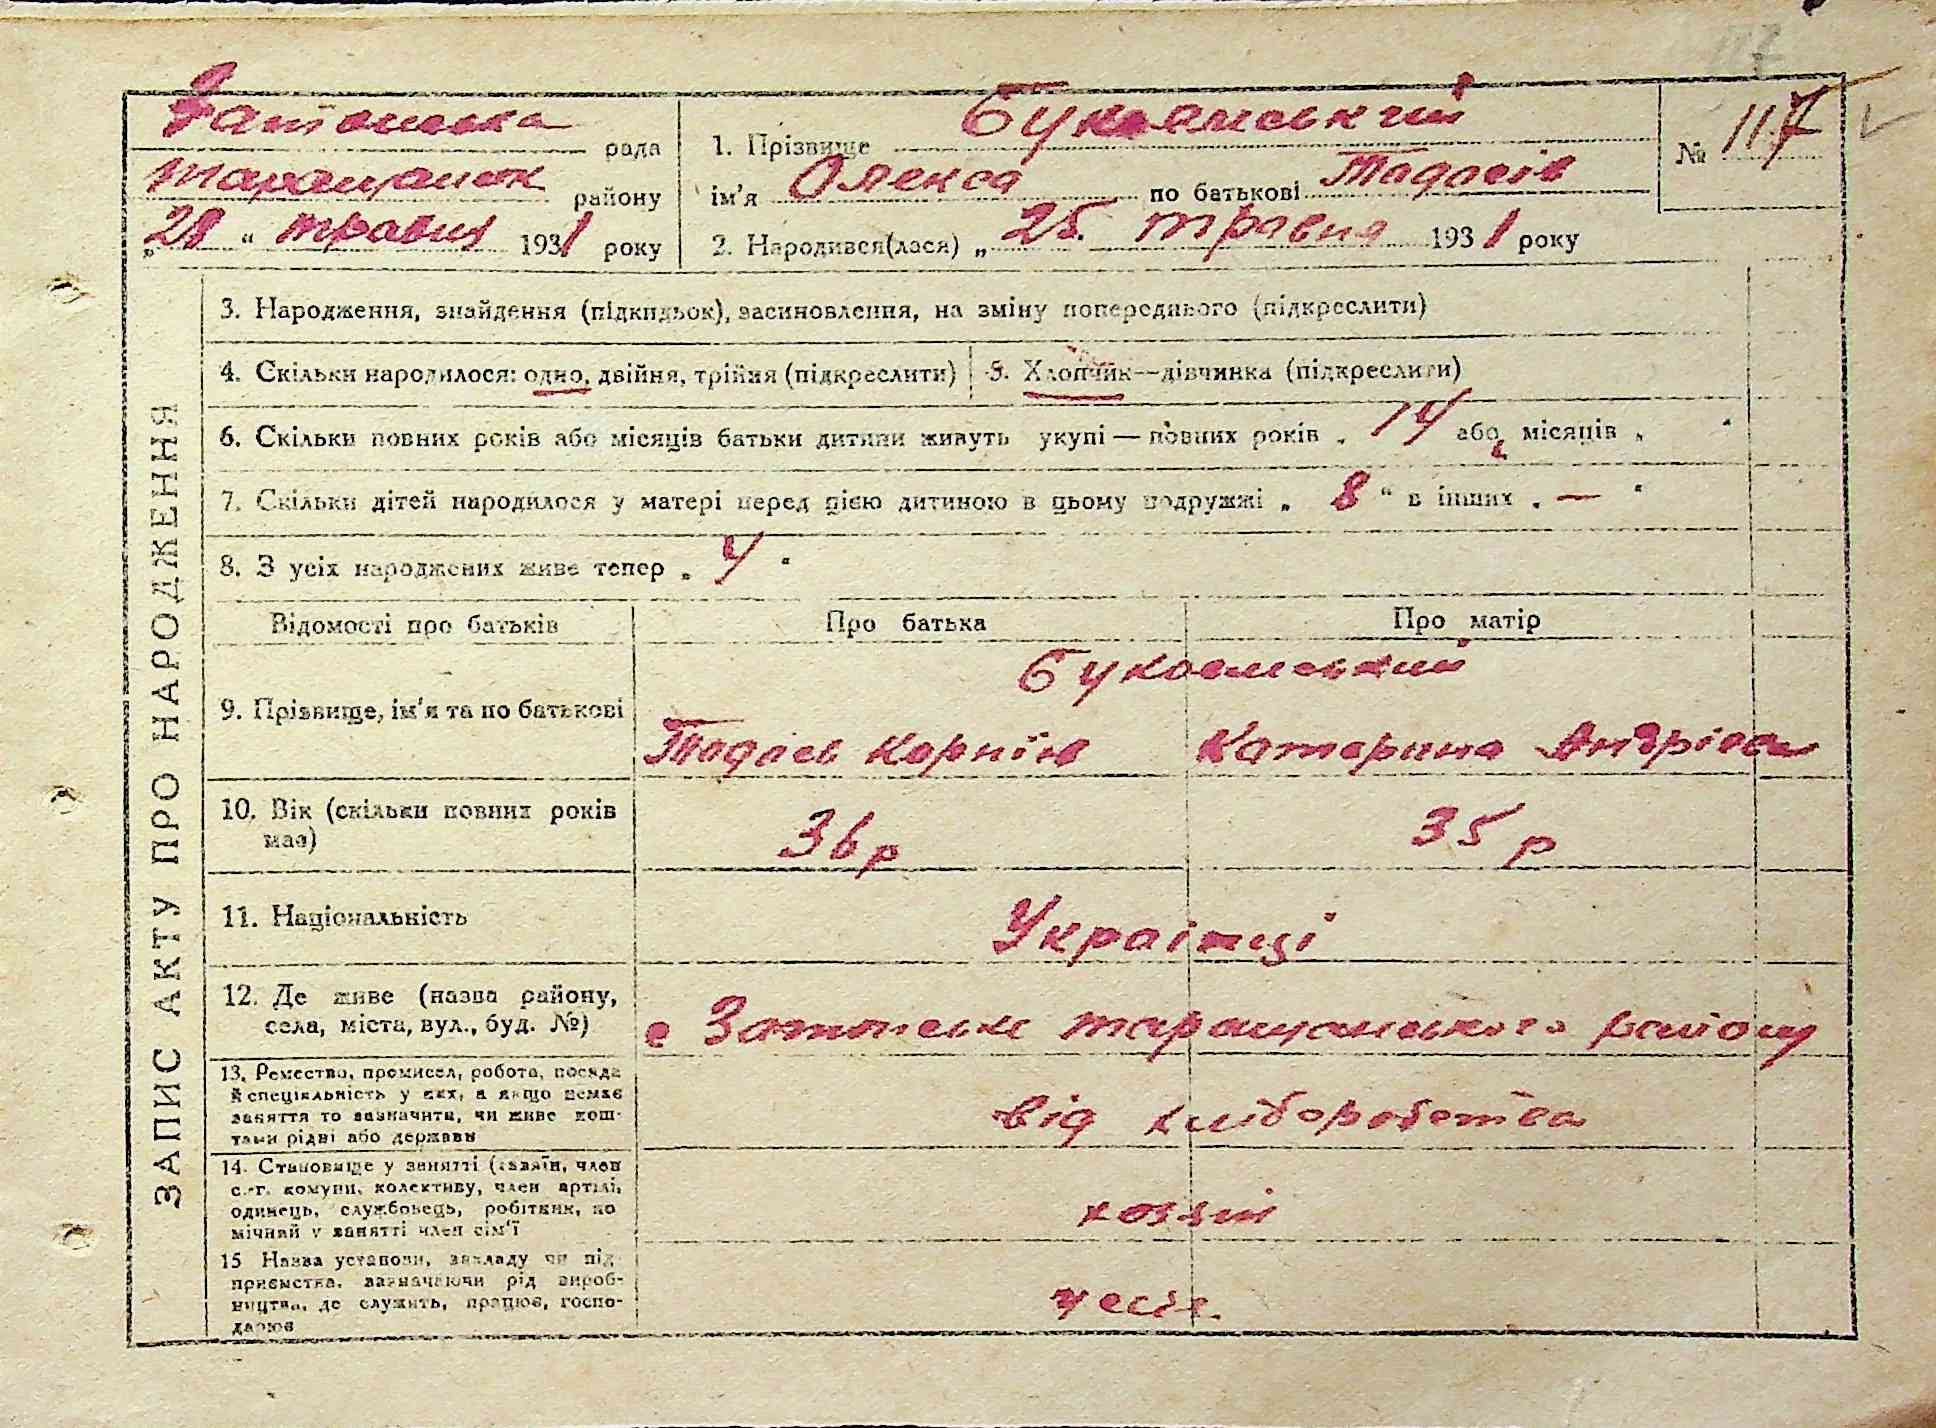 рада
район району
„28“ травня 1931 року
1. Прізвище Букоємський
ім'я Олекса по батькові Тадосів
2. Народився(лася) „25 травня 1931 року
№ 117
ЗАПИС АКТУ ПРО НАРОДЖЕННЯ
3. Народження, знайдення (підкидьок), всиновлення, на зміну попереднього (підкреслити)
4. Скільки народилося: одно, двійня, трійня (підкреслити)
5. Хлопчик—дівчинка (підкреслити)
6. Скільки повних років або місяців батьки дитини живуть укупі — повних років „ 14 або місяців „ “
7. Скільки дітей народилося у матері перед цією дитиною в цьому подружжі „ 8 “ в інших „ — “
8. З усіх народжених живе тепер „ 4 “
Відомості про батьків Про батька Про матір
Букоємський
9. Прізвище, ім'я та по батькові
Тадось Корніїв Катерина Андрієва
10. Вік (скільки повних років
має)
36 р 35 р
11. Національність
Украінці
12. Де живе (назва району,
села, міста, вул., буд. №)
с таращанського району
13. Ремество, промисел, робота, посада
й спеціяльність у них, а якщо немає
заняття то зазначити, чи живе кош-
тами рідні або держави
від хліборобства
14. Становище у занятті (хазяїн, член
с.-г. комуни, колективу, член артілі,
одинець, службовець, робітник, по
мічний у занятті член сім'ї
хозяін
15 Назва установи, закладу чи під-
приємства, зазначаючи рід вироб-
ництва, де служить, працює, госпо-
дарює
у селі